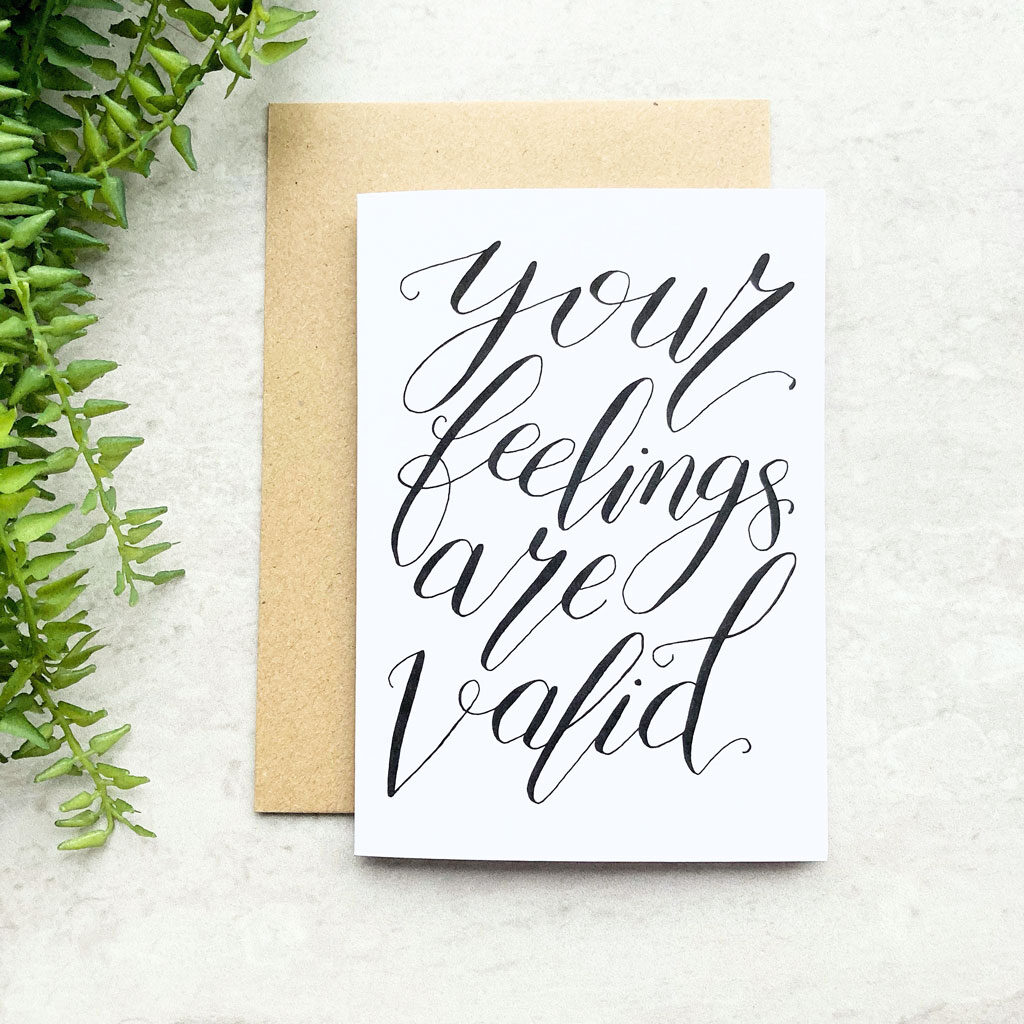 your
feelings
are
valid